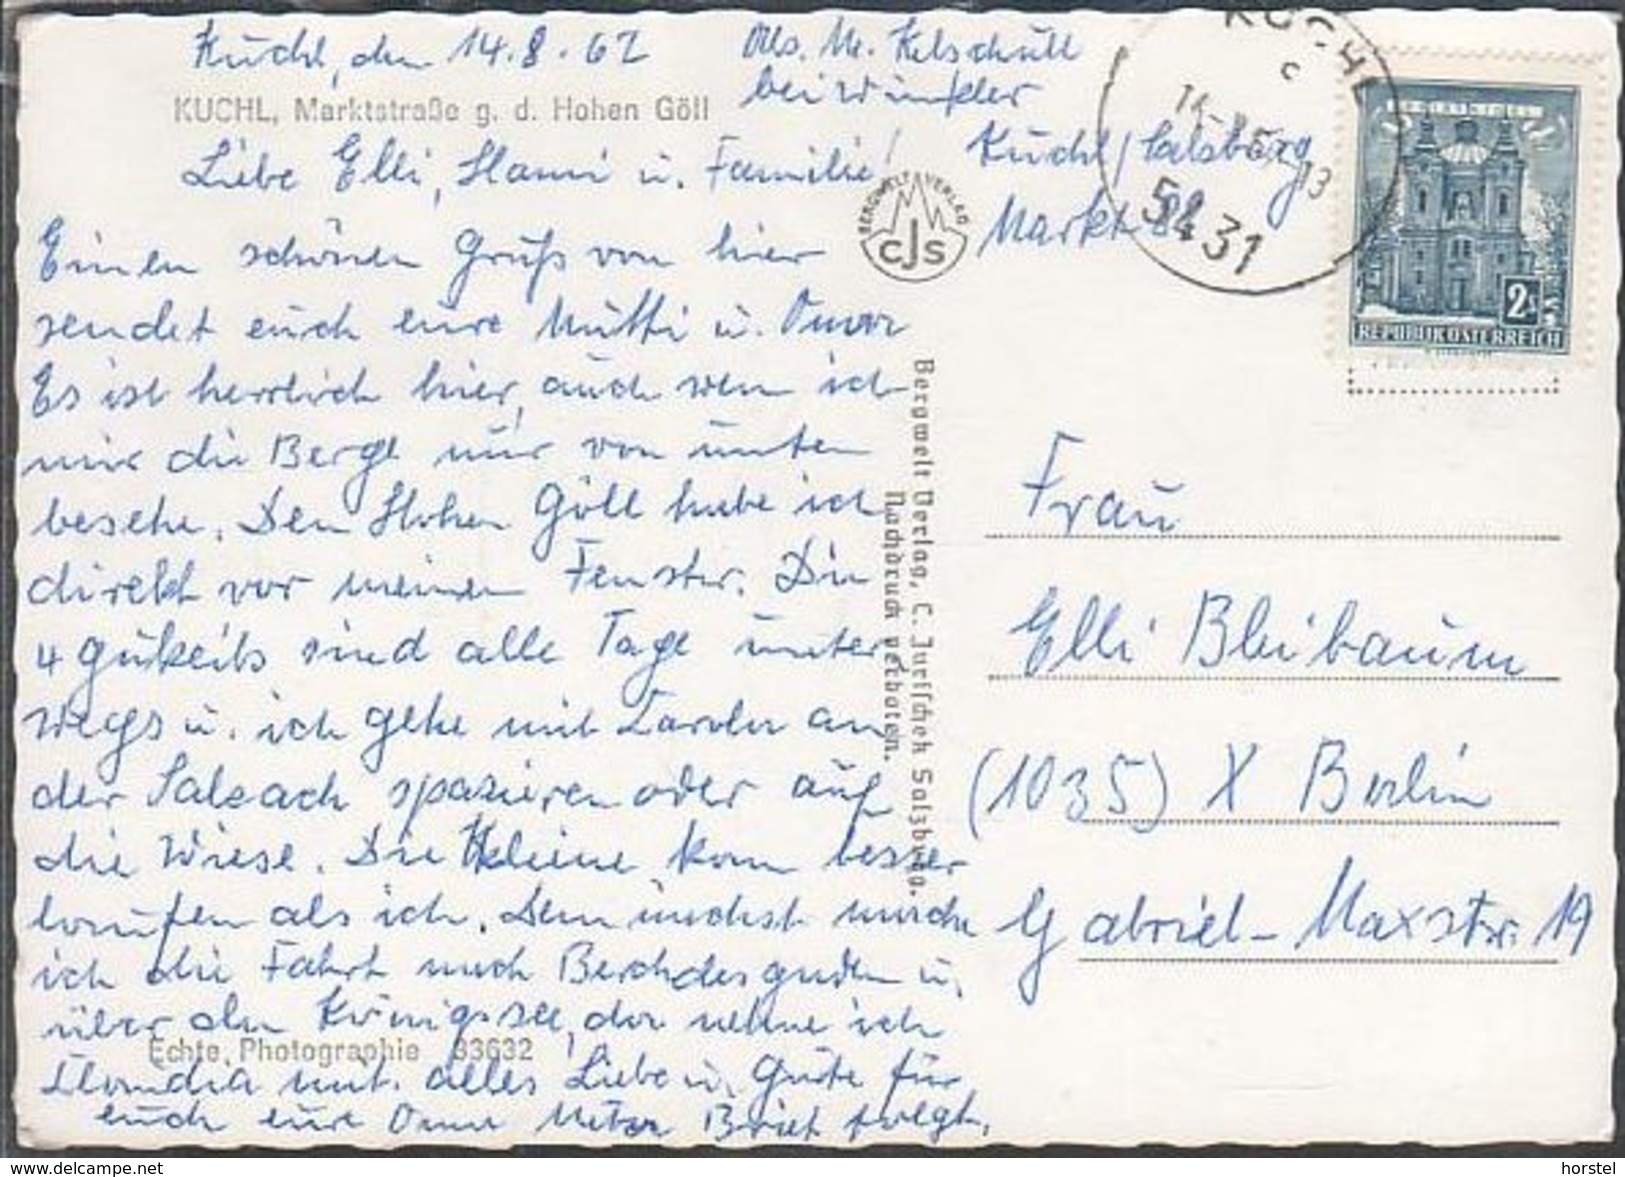 Kuchl, den 14.8.62
Abs. M. Kelschüll
bei Winkler
Kuchl / Salzburg
Markt 82
KUCHL, Marktstraße g. d. Hohen Göll
Liebe Elli, Hanni u. Familie!
Einen schönen Gruß von hier
sendet euch eure Mutti u. Oma
Es ist herrlich hier, auch wen ich
mir die Berge nur von unten
besehe. Den Hohen Göll habe ich
direkt vor meinen Fenster. Die
4 sind alle Tage unter
wegs u. ich gehe mit an
der Salzach spazieren oder auf
die Wiese. Die Kleine kann besser
laufen als ich. Dem nächst mache
ich die Fahrt nach Berchdesgaden u.
über den Königssee, da nehme ich
Claudia mit. alles Liebe u. Gute für
euch eure Oma Brief folgt.
Echte Photographie 33632
BERGWELT VERLAG
CJS
Bergwelt Verlag, C. Jurischek Salzburg.
Nachdruck verboten.
KUCHL
c
5431
2S
REPUBLIK ÖSTERREICH
Frau
Elli Bleibaum
(1035) X Berlin
Gabriel-Maxstr. 19
horstel
www.delcampe.net